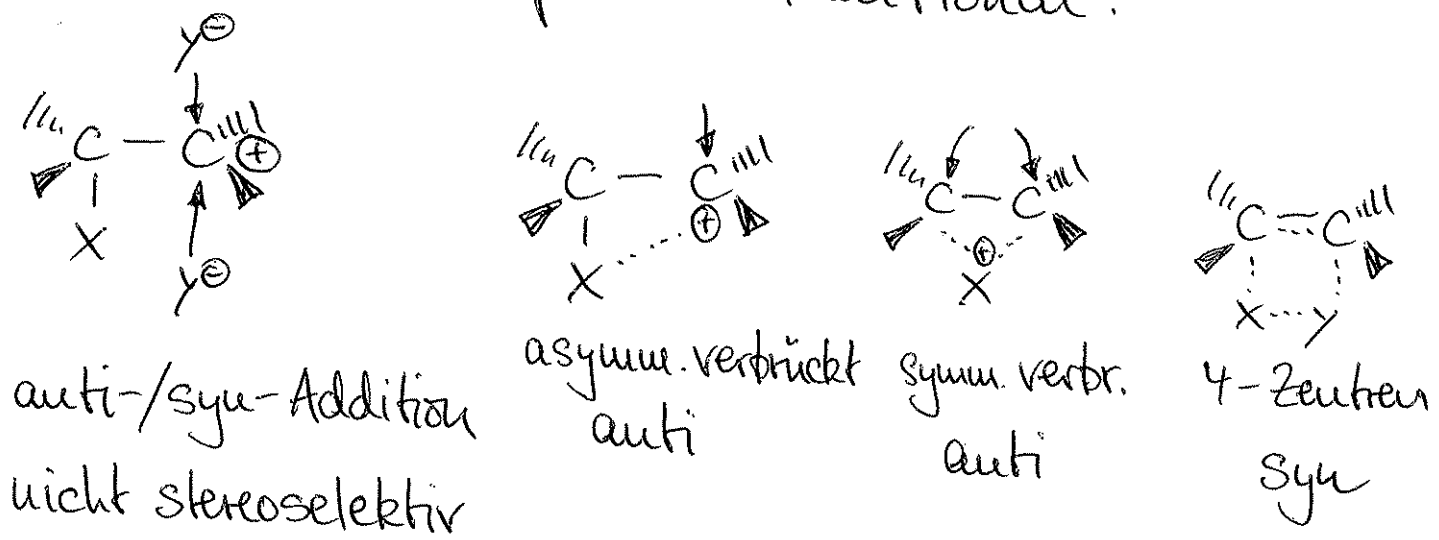 Y⊖
C — C ⊕
X
Y⊖
anti-/syn-Addition
nicht stereoselektiv
C — C
⊕
X
asymm. verbrückt
anti
C — C
⊕
X
symm. verbr.
anti
C C
X Y
4-Zentren
syn